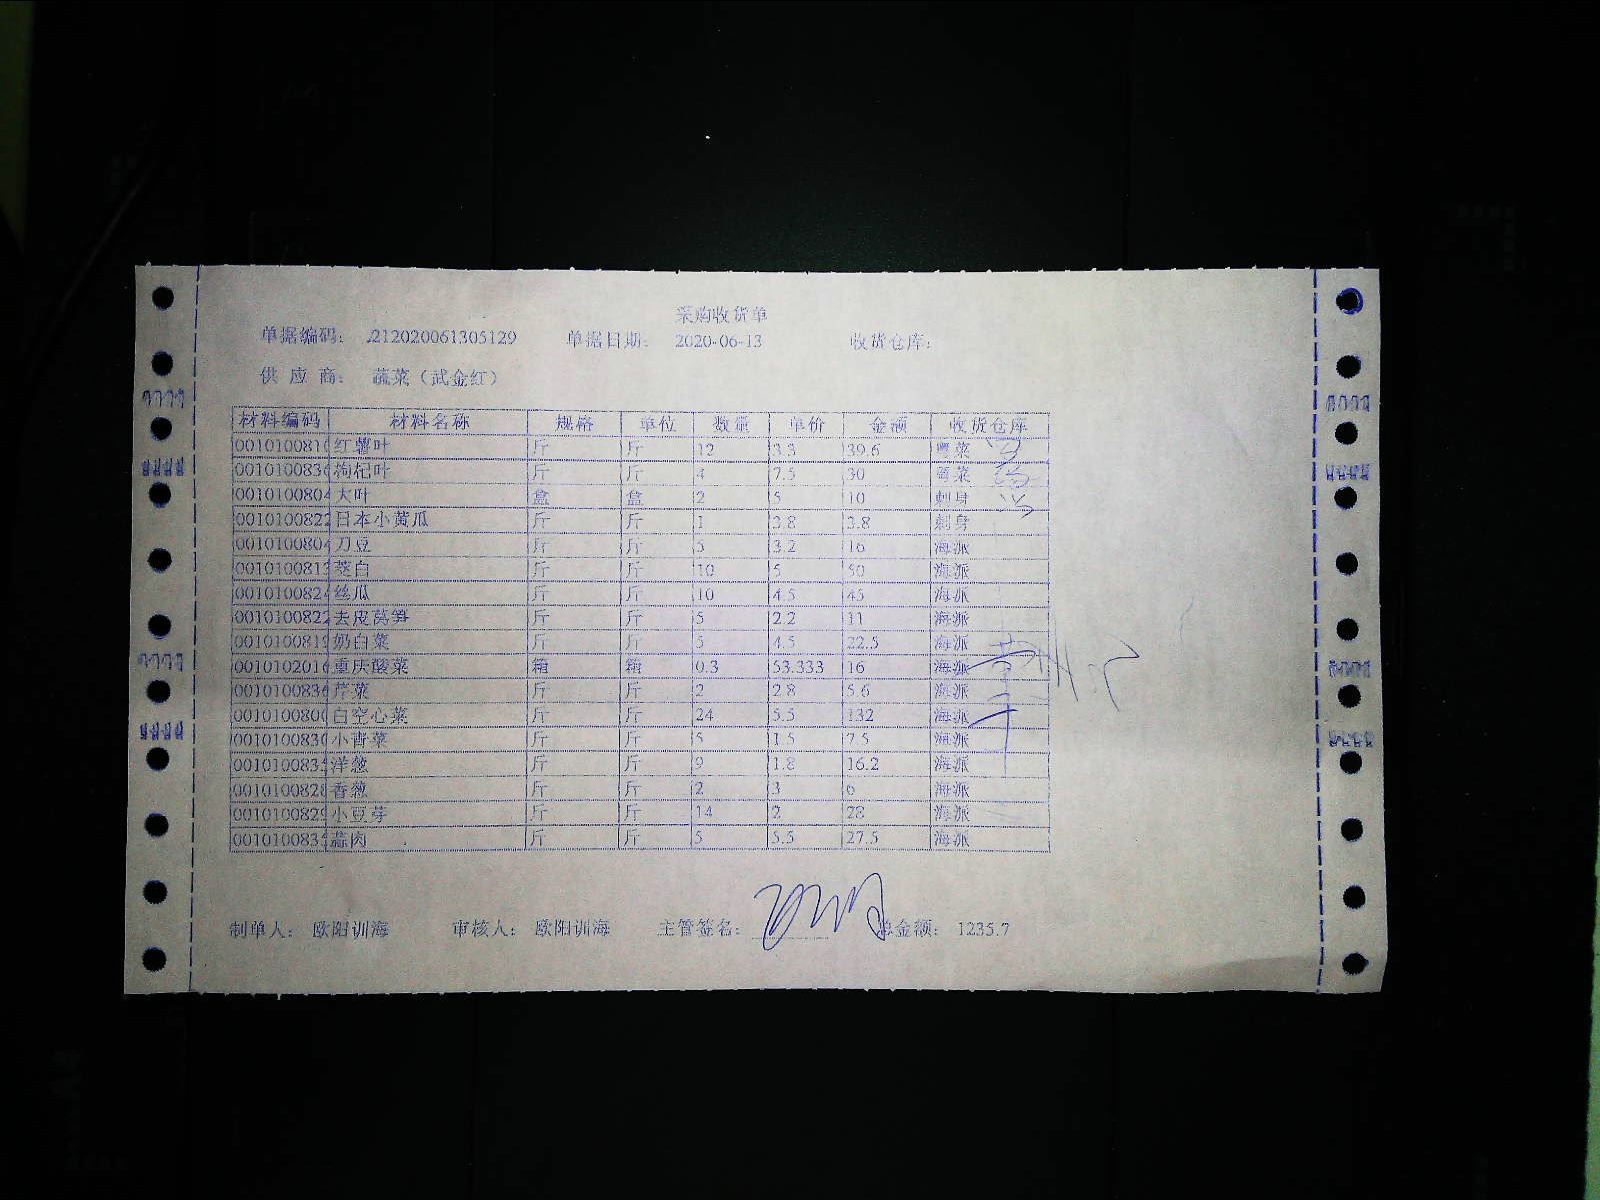 采购收货单
单据编码： 212020061305129 单据日期： 2020-06-13 收货仓库：
供 应 商： 蔬菜（武金红）
材料编码 材料名称 规格 单位 数量 单价 金额 收货仓库
001010081 红薯叶 斤 斤 12 3.3 39.6 粤菜
001010083 枸杞叶 斤 斤 4 7.5 30 粤菜
0010100804 大叶 盒 盒 2 5 10 刺身
0010100822 日本小黄瓜 斤 斤 1 3.8 3.8 刺身
0010100804 刀豆 斤 斤 5 3.2 16 海派
001010081 茭白 斤 斤 10 5 50 海派
001010082 丝瓜 斤 斤 10 4.5 45 海派
0010100822 去皮莴笋 斤 斤 5 2.2 11 海派
001010081 奶白菜 斤 斤 5 4.5 22.5 海派
001010201 重庆酸菜 箱 箱 0.3 53.333 16 海派
001010083 芹菜 斤 斤 2 2.8 5.6 海派
001010080 白空心菜 斤 斤 24 5.5 132 海派
001010083 小青菜 斤 斤 5 1.5 7.5 海派
001010083 洋葱 斤 斤 9 1.8 16.2 海派
001010082 香葱 斤 斤 2 3 6 海派
001010082 小豆芽 斤 斤 14 2 28 海派
001010083 蒜肉 斤 斤 5 5.5 27.5 海派
制单人： 欧阳训海 审核人： 欧阳训海 主管签名： 总金额： 1235.7